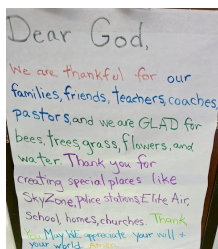 Dear God,
We are thankful for our
families, friends, teachers, coaches
pastors, and we are GLAD for
bees, trees, grass, flowers, and
water. Thank you for
creating special places like
SkyZone, Police stations, Elite Air,
School, homes, churches. Thank
You. May We appreciate your will +
your world.